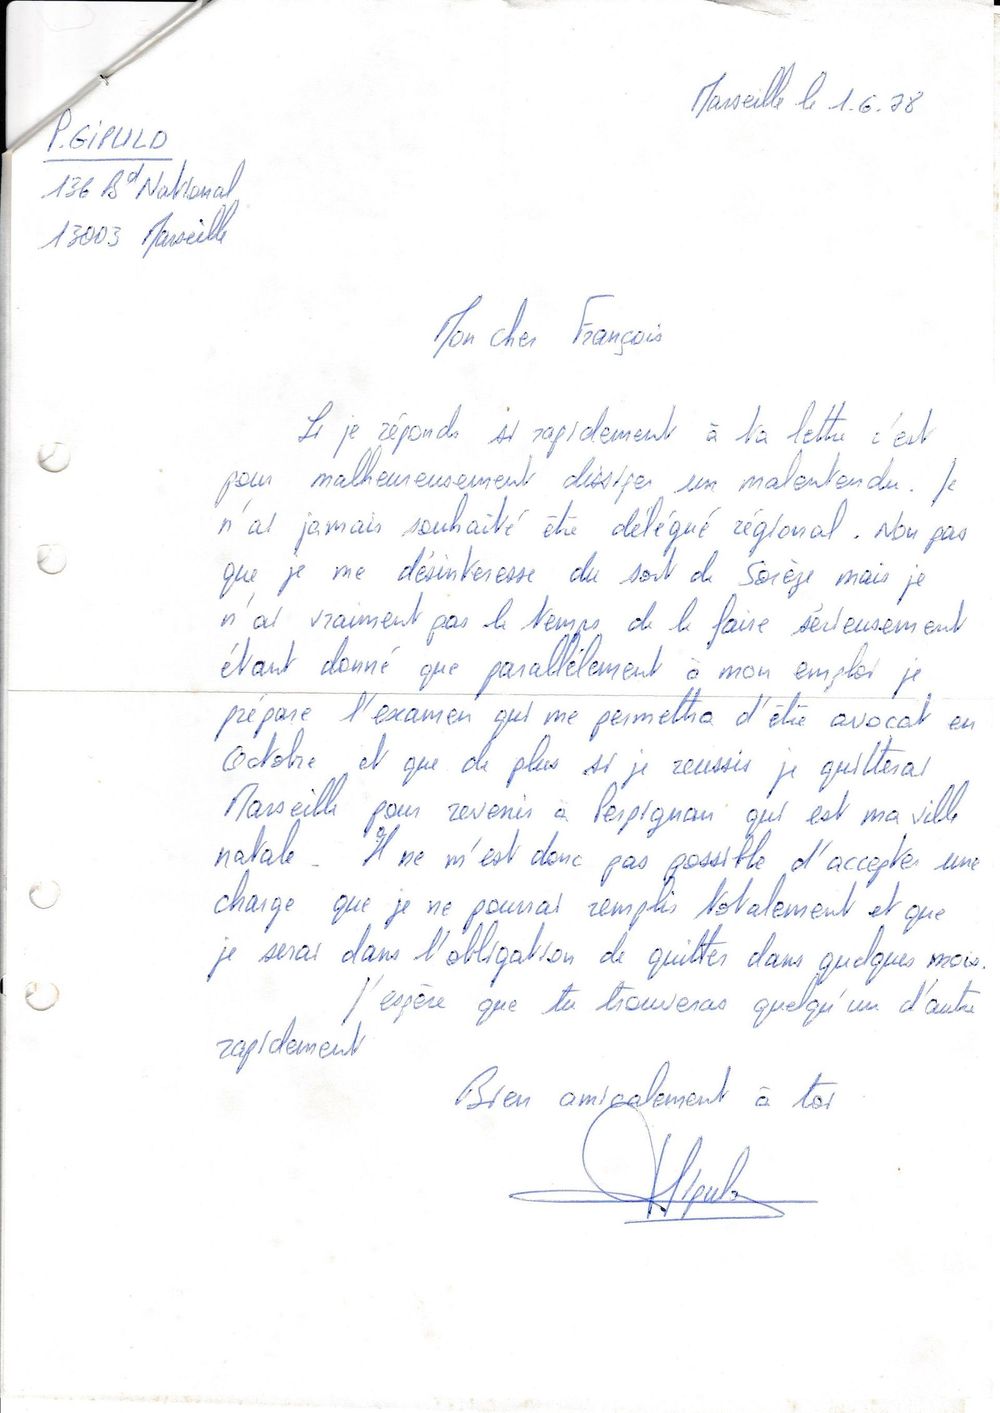 Marseille le 1.6.78
P. GIPULO
136 Bd National
13003 Marseille
Mon cher François
Si je réponds si rapidement à ta lettre c'est
pour malheureusement dissiper un malentendu. Je
n'ai jamais souhaité être délégué régional. Non pas
que je me désintéresse du sort de Sorèze mais je
n'ai vraiment pas le temps de le faire sérieusement
étant donné que parallèlement à mon emploi je
prépare l'examen qui me permettra d'être avocat en
Octobre et que de plus si je reussis je quitterai
Marseille pour revenir à Perpignan qui est ma ville
natale - Il ne m'est donc pas possible d'accepter une
charge que je ne pourrai remplir totalement et que
je serai dans l'obligation de quitter dans quelques mois.
J'espère que tu trouveras quelqu'un d'autre
rapidement
Bien amicalement à toi
Gipulo